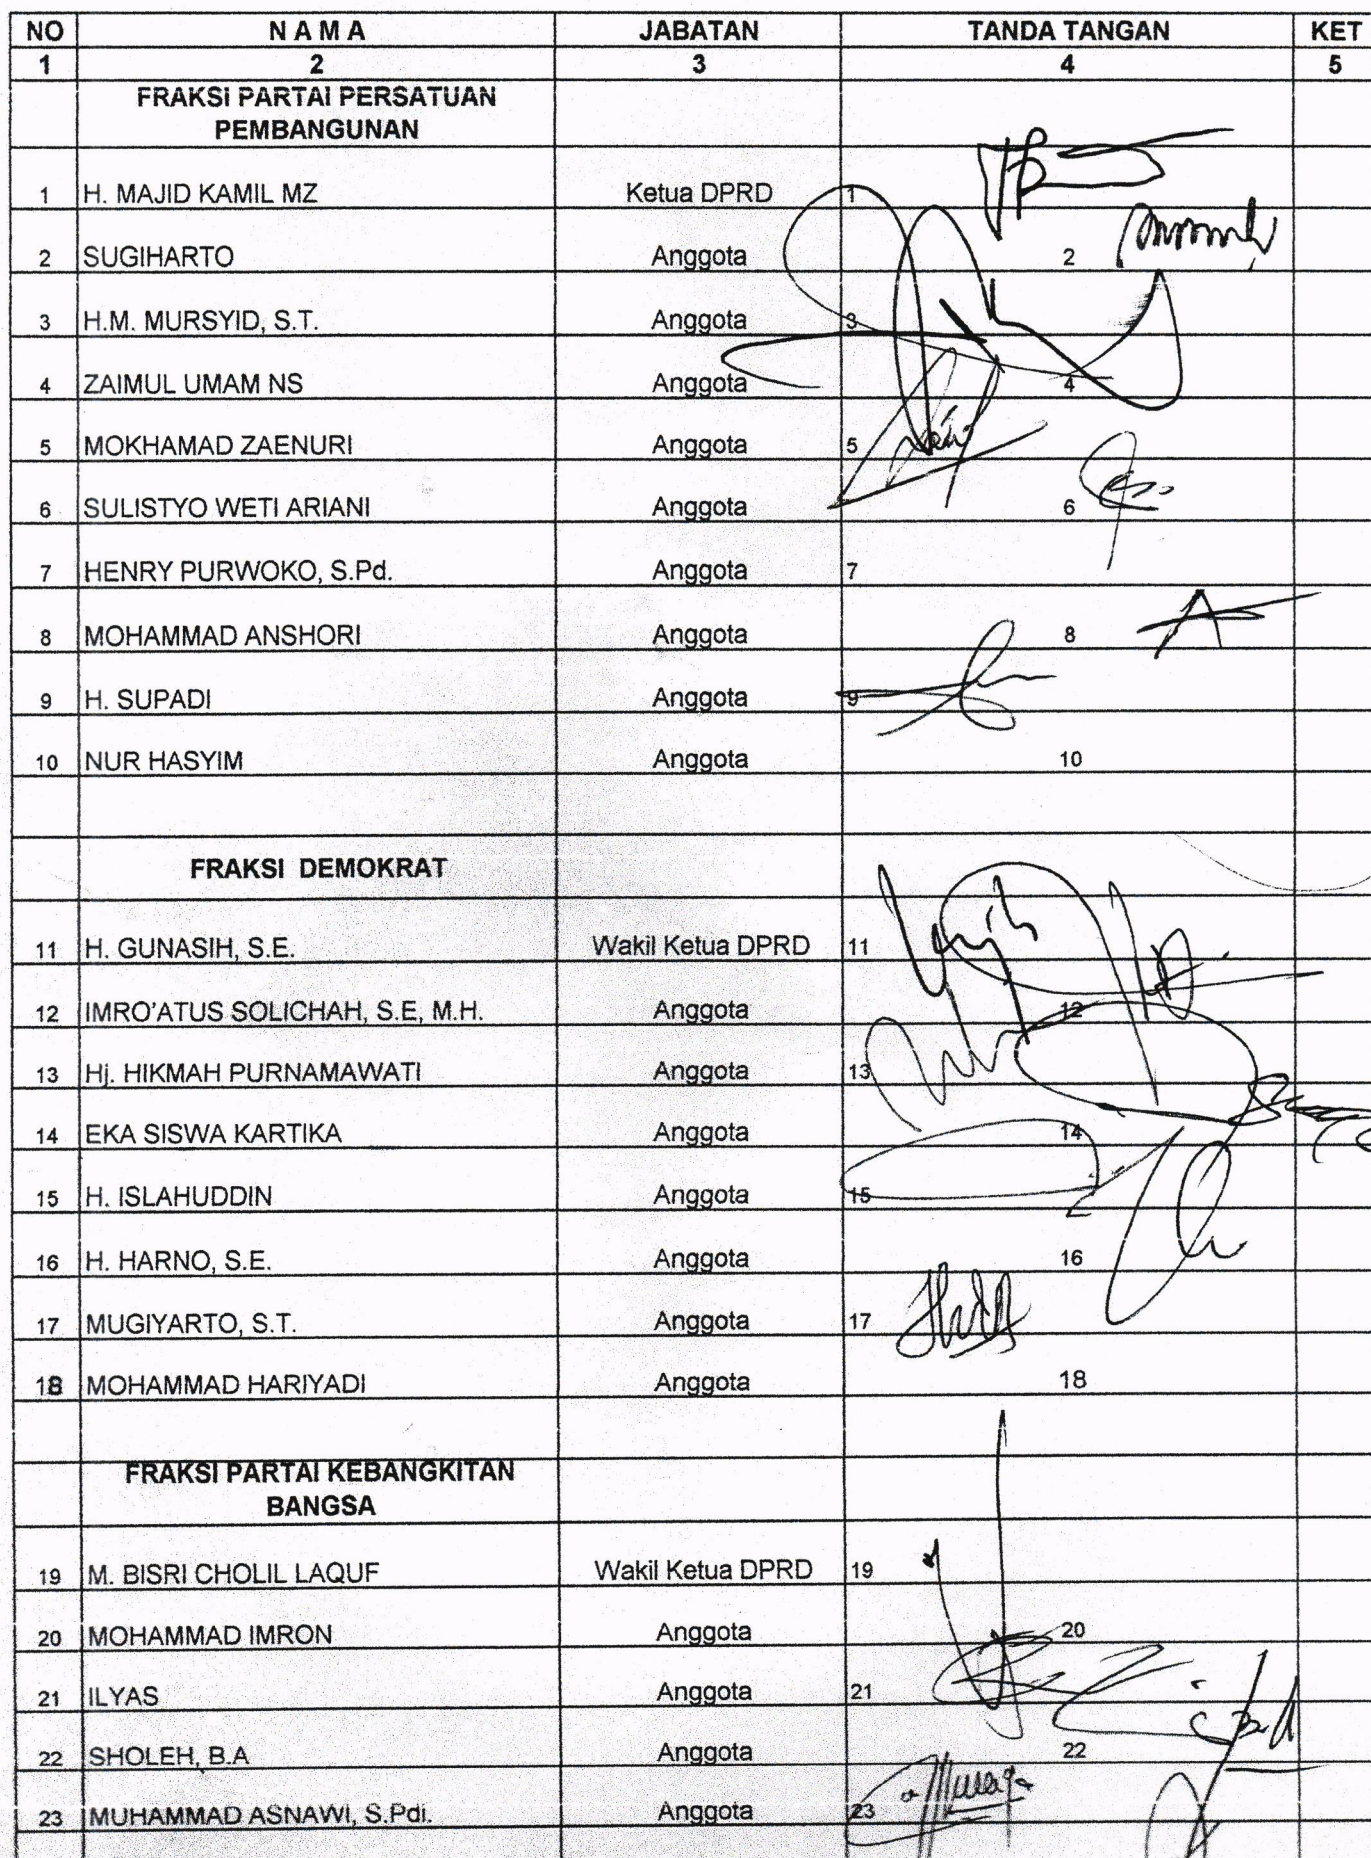 NO NAMA JABATAN TANDA TANGAN KET
1 2 3 4 5
FRAKSI PARTAI PERSATUAN
PEMBANGUNAN
1 H. MAJID KAMIL MZ Ketua DPRD 1
2 SUGIHARTO Anggota 2
3 H.M. MURSYID, S.T. Anggota 3
4 ZAIMUL UMAM NS Anggota 4
5 MOKHAMAD ZAENURI Anggota 5
6 SULISTYO WETI ARIANI Anggota 6
7 HENRY PURWOKO, S.Pd. Anggota 7
8 MOHAMMAD ANSHORI Anggota 8
9 H. SUPADI Anggota 9
10 NUR HASYIM Anggota 10
FRAKSI DEMOKRAT
11 H. GUNASIH, S.E. Wakil Ketua DPRD 11
12 IMRO'ATUS SOLICHAH, S.E, M.H. Anggota 12
13 Hj. HIKMAH PURNAMAWATI Anggota 13
14 EKA SISWA KARTIKA Anggota 14
15 H. ISLAHUDDIN Anggota 15
16 H. HARNO, S.E. Anggota 16
17 MUGIYARTO, S.T. Anggota 17
18 MOHAMMAD HARIYADI Anggota 18
FRAKSI PARTAI KEBANGKITAN
BANGSA
19 M. BISRI CHOLIL LAQUF Wakil Ketua DPRD 19
20 MOHAMMAD IMRON Anggota 20
21 ILYAS Anggota 21
22 SHOLEH, B.A Anggota 22
23 MUHAMMAD ASNAWI, S.Pdi. Anggota 23